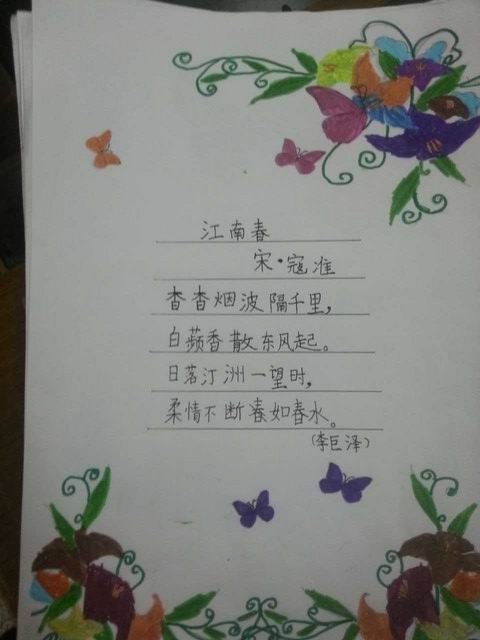 江南春
宋·寇准
杳杳烟波隔千里,
白蘋香散东风起。
日落汀洲一望时,
柔情不断春如春水。
(李巨泽)